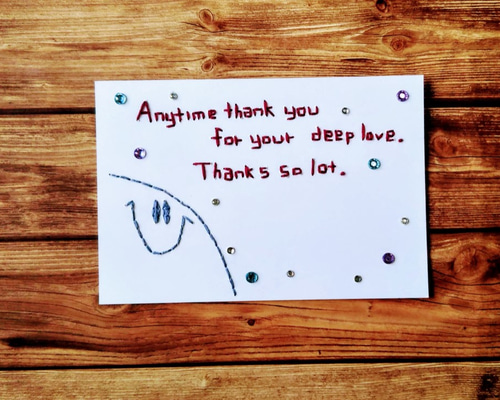 Anytime thank you
for your deep love.
Thanks so lot.